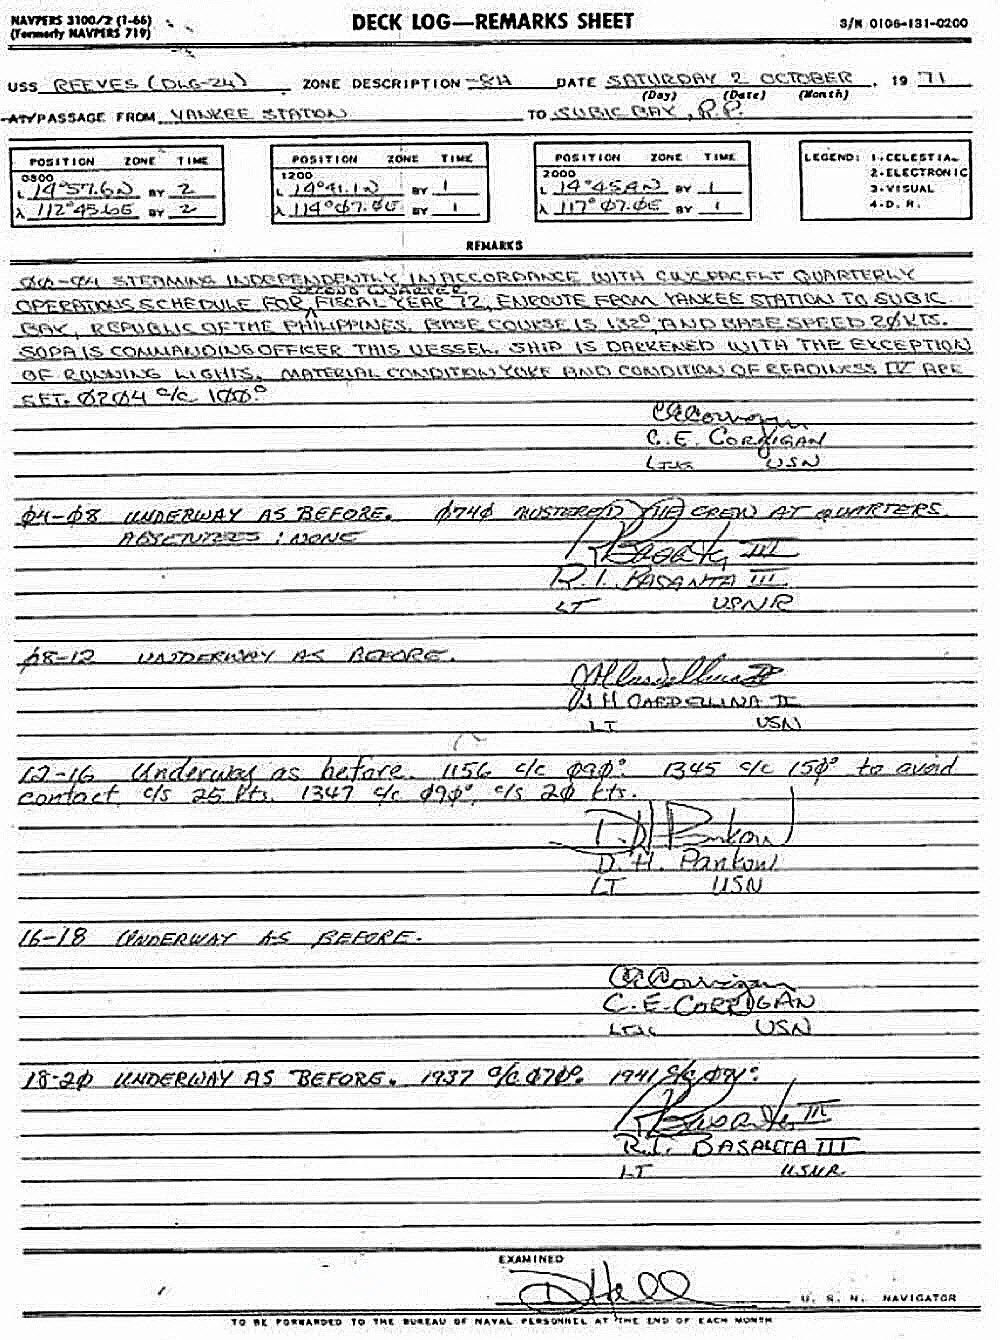 NAVPERS 3100/2 (1-66)
(Formerly NAVPERS 719)
DECK LOG—REMARKS SHEET
S/N 0106-131-0200
USS REEVES (DLG-24) ZONE DESCRIPTION -8H DATE SATURDAY 2 OCTOBER, 19 71
(Day) (Date) (Month)
AT/PASSAGE FROM YANKEE STATION TO SUBIC BAY, R.P.
POSITION ZONE TIME
0800
L 14°57.6N BY 2
λ 112°45.6E BY 2
POSITION ZONE TIME
1200
L 14°41.1N BY 1
λ 114°07.0E BY 1
POSITION ZONE TIME
2000
L 14°45.4N BY 1
λ 117°07.0E BY 1
LEGEND: 1-CELESTIAL
2-ELECTRONIC
3-VISUAL
4-D. R.
REMARKS
00-04 STEAMING INDEPENDENTLY IN ACCORDANCE WITH QUARTERLY
SECOND QUARTER
OPERATIONS SCHEDULE FOR FISCAL YEAR 72, ENROUTE FROM YANKEE STATION TO SUBIC
BAY, REPUBLIC OF THE PHILIPPINES. BASE COURSE IS 132°, AND BASE SPEED 20 KTS.
SOPA IS COMMANDING OFFICER THIS VESSEL. SHIP IS DARKENED WITH THE EXCEPTION
OF RUNNING LIGHTS. MATERIAL CONDITION YOKE AND CONDITION OF READINESS IV ARE
SET. 0204 c/c 100°
CECorrigan
C. E. CORRIGAN
LTJG USN
04-08 UNDERWAY AS BEFORE. 0740 MUSTERED THE CREW AT QUARTERS.
ABSENTEES: NONE
R Basanta III
R. I. BASANTA III
LT USNR
08-12 UNDERWAY AS BEFORE.
JHCardellina II
J H CARDELLINA II
LT USN
12-16 Underway as before. 1156 c/c 090°. 1345 c/c 150° to avoid
contact, c/s 25 kts. 1347 c/c 090°, c/s 20 kts.
D. H. Pankow
D. H. Pankow
LT USN
16-18 UNDERWAY AS BEFORE.
CECorrigan
C. E. CORRIGAN
LTJG USN
18-20 UNDERWAY AS BEFORE. 1937 c/c 070°. 1941 c/c 091°.
R Basanta III
R. I. BASANTA III
LT USNR
EXAMINED
D Hall
U. S. N. NAVIGATOR
TO BE FORWARDED TO THE BUREAU OF NAVAL PERSONNEL AT THE END OF EACH MONTH